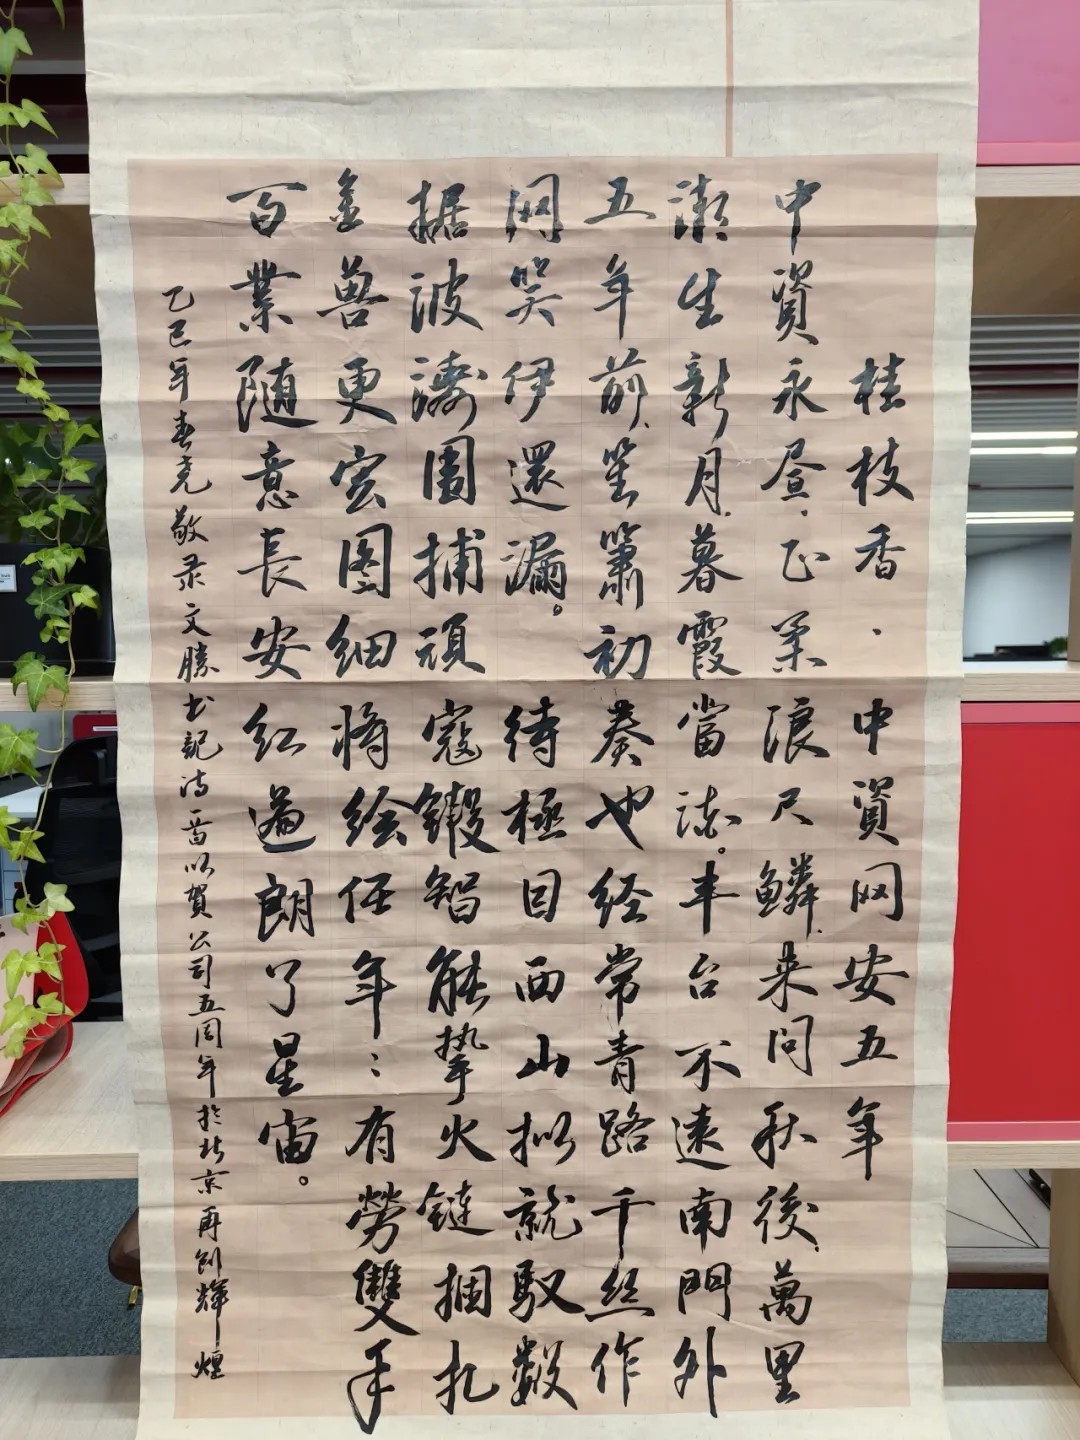 桂枝香·中資网安五年
中資永昼、正柔浪尺鱗、来问秋後、萬里
潮生新月、暮霞當。丰台不遠南門外
五年前、笙簫初奏也经常青路千丝作
网笑伊還漏。待極目西山拟就馭數
据波濤圍捕頑寇鍛智能挚火链捆扎
金兽更宏图细将绘任年〻有勞雙手
百業随意長安红遍朗了星宙。
乙巳年春尧敬录文勝书記诗音以賀公司五周年於北京再创輝煌